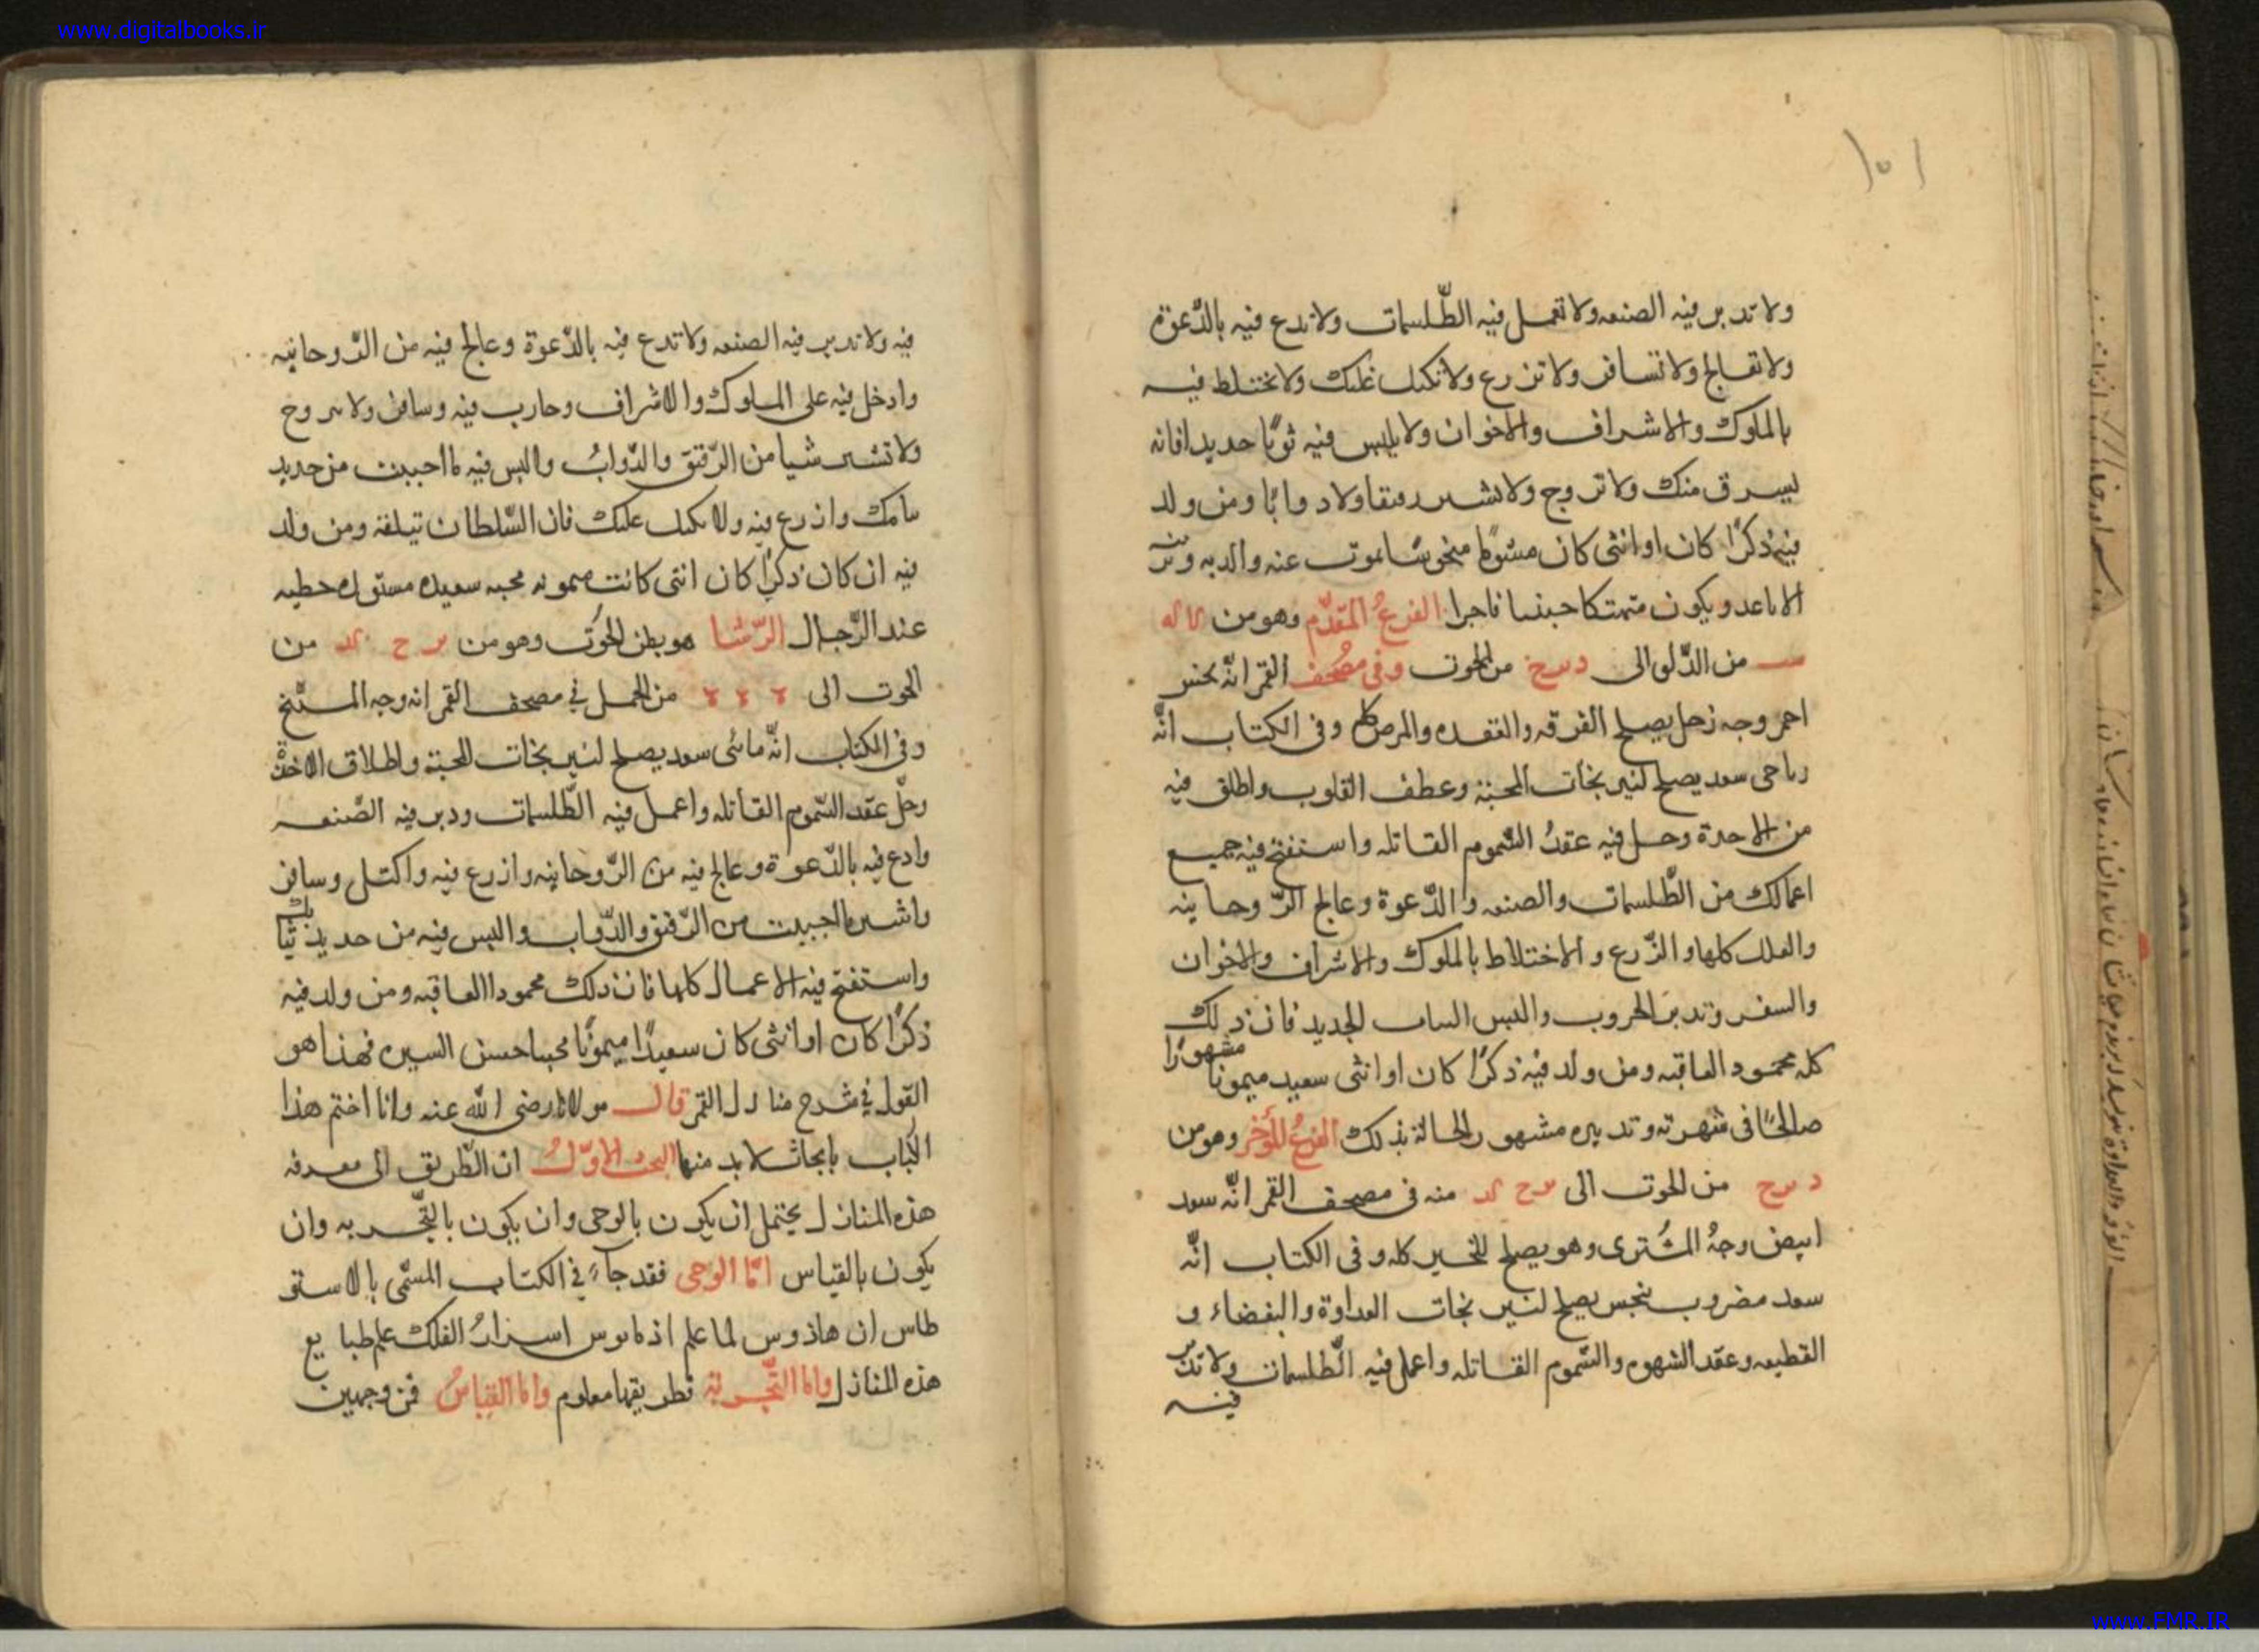 www.digitalbooks.ir
ولا تدبر فيه الصنعه ولا تعمل فيه الطّلسمات ولا تدع فيه بالدّعوة
ولا تعالج ولا تسافر ولا تزرع ولا تكيل غلتك ولا تختلط فيه
بالملوك والاشراف والاخوان ولا يلبس فيه ثوبًا جديدا فانه
يسرق منك ولا تزوج ولا تشتر رقيقا ولا دوابًا ومن ولد
فيه ذكرًا كان او انثى كان مشؤمًا منحوسًا يموت عنه والديه
الاباعد ويكون متهتكا خبيثا فاجرا الفرغُ المقدّم وهو من
من الدّلو الى من الحوت وفى مصحف القمر انّه نحس
احمر وجه زحل يصلح الفرقه والعقده والمرض وفى الكتاب انّه
رياحى سعد يصلح لنيرنجات المحبّة وعطف القلوب واطلق فيه
من الاخذة وحل فيه عقدُ السّموم القاتله واستفتح فيه جميع
اعمالك من الطّلسمات والصنعه والدّعوة وعالج الرّوحانيه
والعلل كلها والزّرع والاختلاط بالملوك والاشراف والاخوان
والسفر وتدبير الحروب واللبس الثياب الجديد فان ذلك
كله محمود العاقبه ومن ولد فيه ذكرًا كان او انثى سعيد ميمونًا مشهورًا
صالحًا فى شهرته وتدبيره مشهور الحالة بذلك الفرغُ المؤخر وهو من
من الحوت الى منه فى مصحف القمر انّه سعد
ابيض وجهُ المشترى وهو يصلح للخير كله وفى الكتاب انّه
سعد مضروب بنحس يصلح لنيرنجات العداوة والبغضاء و
القطيعه وعقد الشهوم والسّموم القاتله واعمل فيه الطّلسمات ولا تدبر
فيه
فيه ولا تدبر فيه الصنعه ولا تدع فيه بالدّعوة وعالج فيه من الرّوحانيه
وادخل فيه على الملوك والاشراف وحارب فيه وسافر ولا تتزوج
ولا تشتر شيا من الرّقيق والدّوابُ والبس فيه ما احببت من جديد
ثيابك وازرع فيه ولا تكيل غلتك فان السّلطان تيلفة ومن ولد
فيه ان كان ذكرًا كان انثى كانت ميمونه محبه سعيده مستوره حظيه
عند الرّجال الرّشا هو بطن الحوت وهو من من
الحوت الى من الحمل فى مصحف القمر انه وجه المرّيخ
وفى الكتاب انّه مائى سعد يصلح لنيرنجات المحبّة واطلاق الاخذة
وحلّ عقد السّموم القاتله واعمل فيه الطّلسمات ودبر فيه الصّنعه
وادع فيه بالدّعوة وعالج فيه من الرّوحانيه وازرع فيه واكتل وسافر
واشتر ما احببت من الرّقيق والدّواب والبس فيه من جديد ثيابك
واستفتح فيه الاعمال كلها فان ذلك محمودا العاقبه ومن ولد فيه
ذكرًا كان او انثى كان سعيدًا ميمونًا محببا حسن السيره فهذا هو
القول فى شرح منازل القمر قال مولانا رضى الله عنه وانا اختم هذا
الكتاب بابحاث لا بد منها البحث الاوّلُ ان الطّريق الى معرفه
هذه المنازل يحتمل ان يكون بالوحى وان يكون بالتّجربه وان
يكون بالقياس امّا الوحى فقد جآء فى الكتاب المسمّى بالاستو
طاس ان هاذوس لما علم اسرارُ الفلك علم طبايع
هذه المنازل واما التّجربة فطريقها معلوم واما القياسُ فمن وجهين
www.FMR.IR